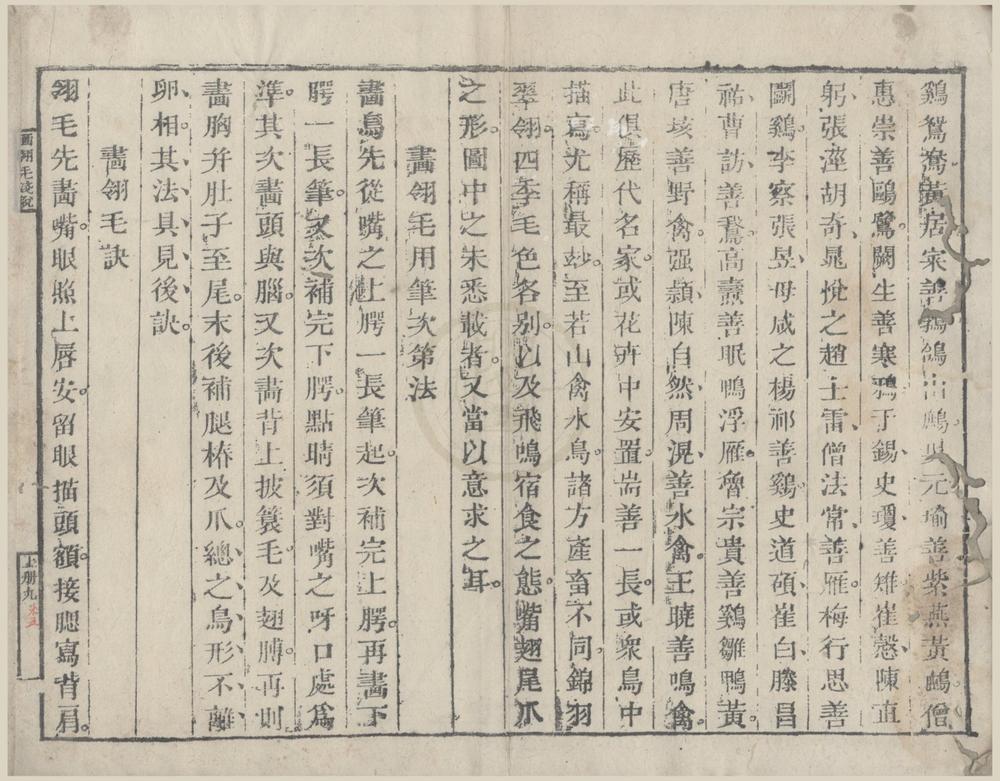 鷄鴛鴦黃居寀善鵓鴿山鷓吳元瑜善紫燕黃鸝僧
惠崇善鷗鷺闕生善寒鴉于錫史瓊善雉崔慤陳直
躬張涇胡奇晁悅之趙士雷僧法常善雁梅行思善
鬪鷄李察張昱毋咸之楊祁善鷄史道碩崔白滕昌
祐曹訪善鵞高燾善眠鴨浮雁魯宗貴善鷄雛鴨黃
唐垓善野禽强頴陳自然周滉善水禽王曉善鳴禽
此俱歷代名家或花卉中安置耑善一長或衆鳥中
描寫尤稱最玅至若山禽水鳥諸方產畜不同錦羽
翠翎四季毛色各別以及飛鳴宿食之態嘴翅尾爪
之形圖中之未悉載者又當以意求之耳
畫翎毛用筆次第法
畫鳥先從嘴之上腭一長筆起次補完上腭再畫下
腭一長筆又次補完下腭點睛須對嘴之呀口處爲
準其次畫頭與腦又次畫背上披蓑毛及翅膊再則
畫胸并肚子至尾末後補腿樁及爪總之鳥形不離
卵相其法具見後訣
畫翎毛訣
翎毛先畫嘴眼照上唇安留眼描頭額接腮寫背肩
畫翎毛淺說
上册九